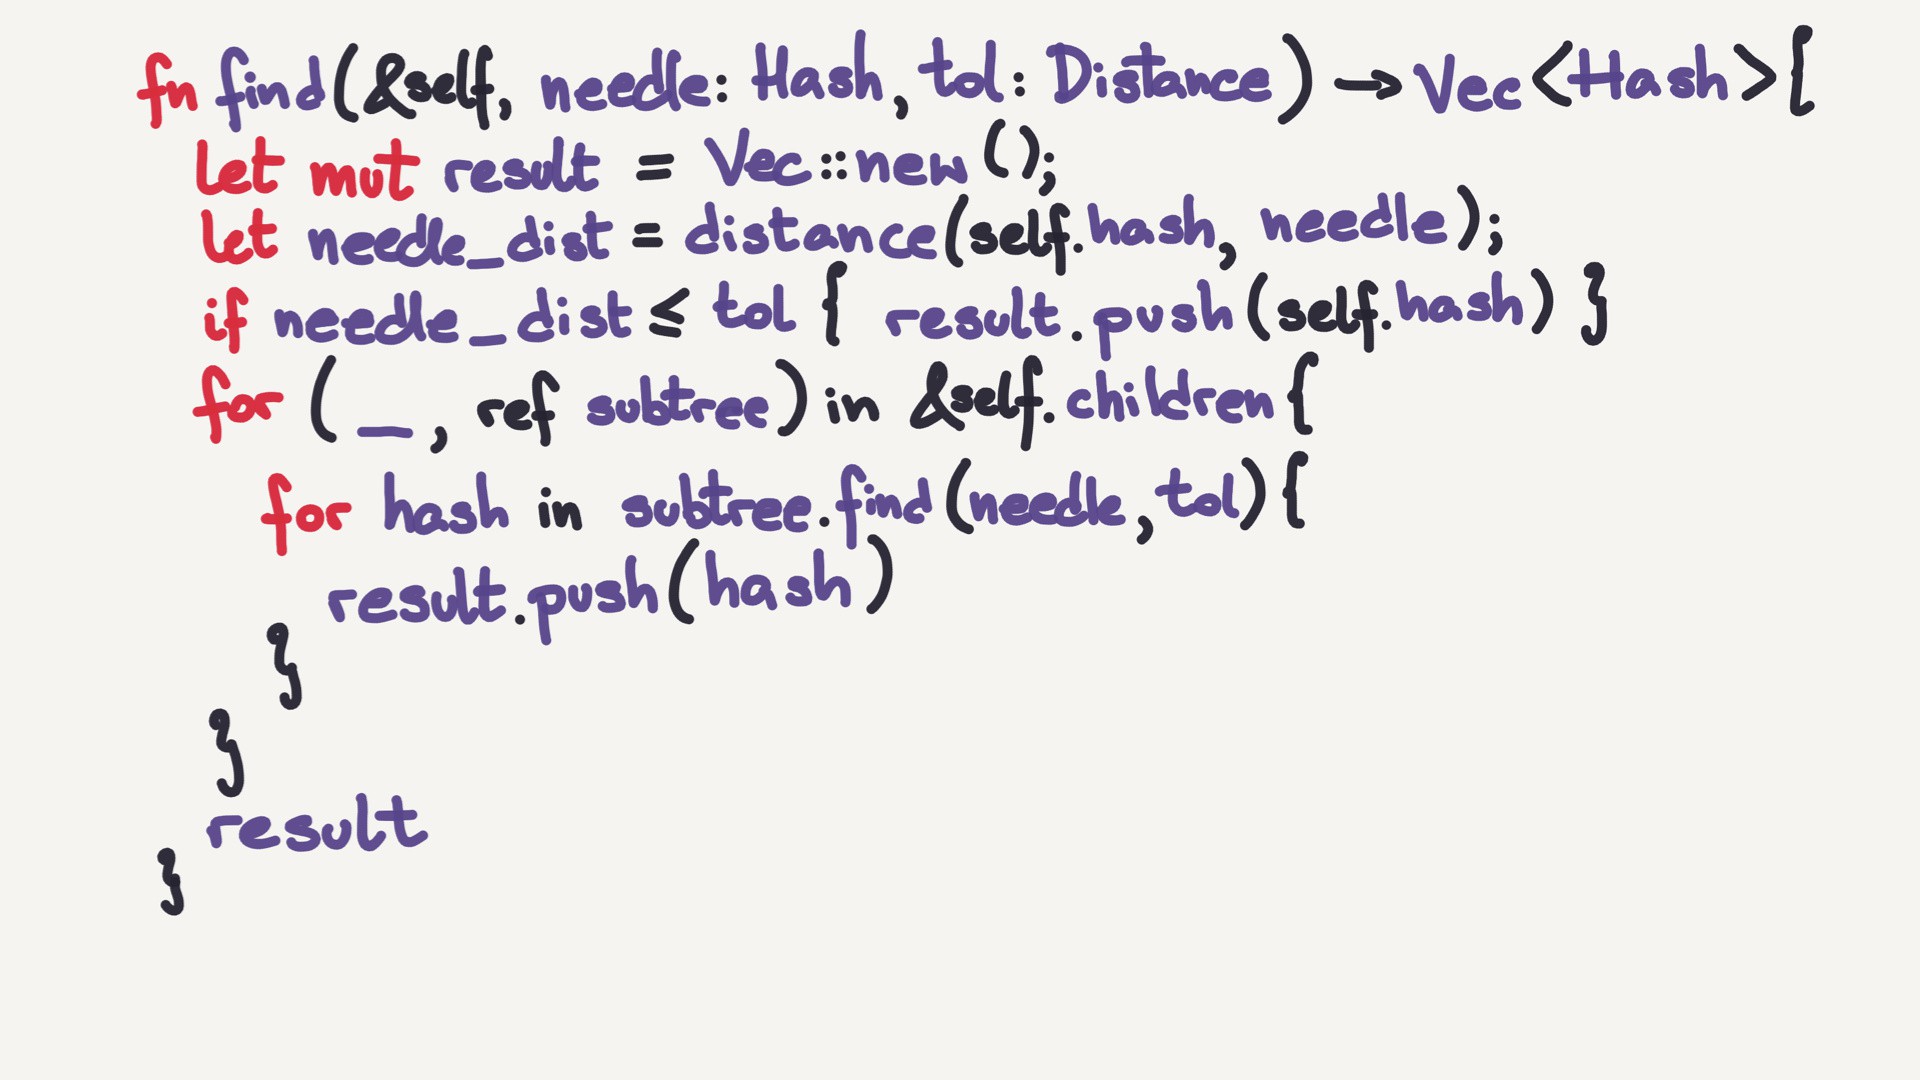 fn find(&self, needle: Hash, tol: Distance) → Vec<Hash>{
let mut result = Vec::new();
let needle_dist = distance(self.hash, needle);
if needle_dist ≤ tol { result.push(self.hash) }
for (_, ref subtree) in &self.children{
for hash in subtree.find(needle,tol){
result.push(hash)
}
}
result
}